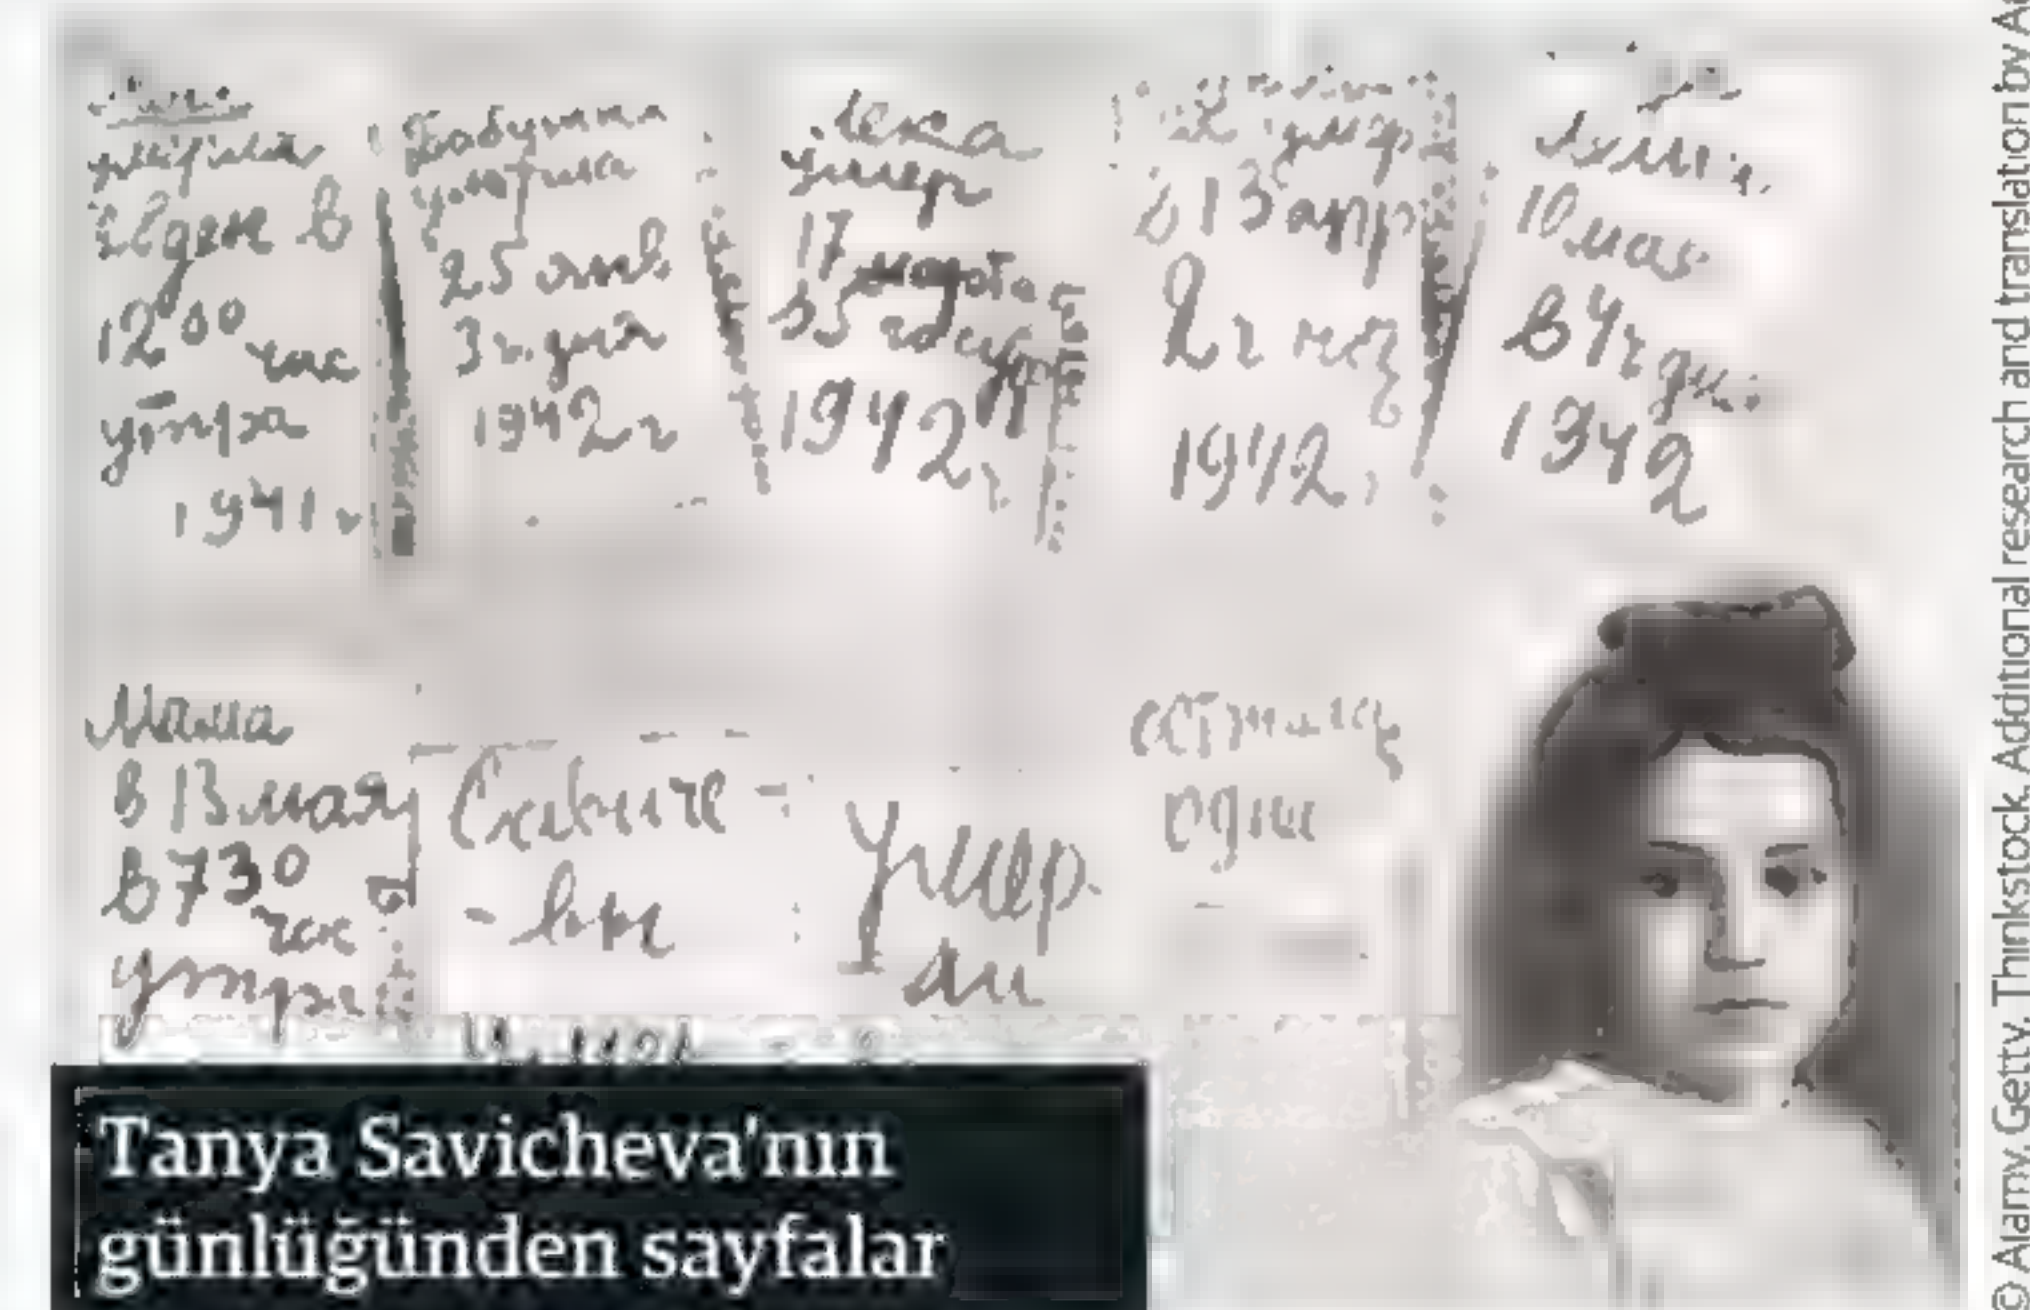 умерла
28 дек в
12 00 час
утра
1941 г
Бабушка
умерла
25 янв.
3 ч. дня
1942 г
Лека
умер
17 марта
в 5 час утр
1942 г
умер
в 13 апр
2 ч ноч
1942 г
Лёша
10 мая
в 4 ч дня
1942
Мама
в 13 мая
в 7 30
час
утра
Савиче-
-вы
Умер-
ли
осталась
одна
Tanya Savicheva'nın
günlüğünden sayfalar
© Alamy, Getty, Thinkstock. Additional research and translation by